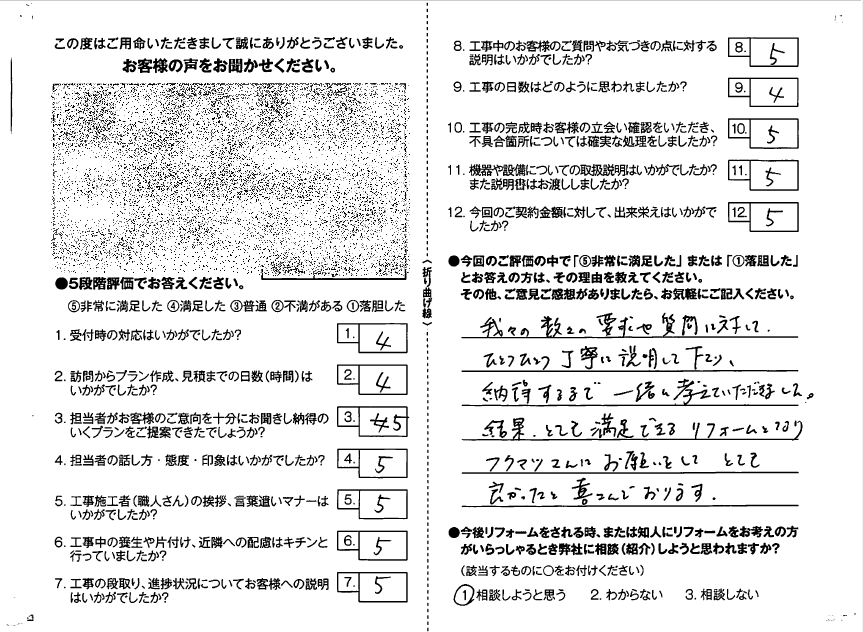 この度はご用命いただきまして誠にありがとうございました。
お客様の声をお聞かせください。
●5段階評価でお答えください。
⑤非常に満足した ④満足した ③普通 ②不満がある ①落胆した
1. 受付時の対応はいかがでしたか? 1. 4
2. 訪問からプラン作成、見積までの日数(時間)は 2. 4
いかがでしたか?
3. 担当者がお客様のご意向を十分にお聞きし納得の 3. 4 5
いくプランをご提案できたでしょうか?
4. 担当者の話し方・態度・印象はいかがでしたか? 4. 5
5. 工事施工者(職人さん)の挨拶、言葉遣いマナーは 5. 5
いかがでしたか?
6. 工事中の養生や片付け、近隣への配慮はキチンと 6. 5
行っていましたか?
7. 工事の段取り、進捗状況についてお客様への説明 7. 5
はいかがでしたか?
〈折り曲げ線〉
8. 工事中のお客様のご質問やお気づきの点に対する 8. 5
説明はいかがでしたか?
9. 工事の日数はどのように思われましたか? 9. 4
10. 工事の完成時お客様の立会い確認をいただき、 10. 5
不具合箇所については確実な処理をしましたか?
11. 機器や設備についての取扱説明はいかがでしたか? 11. 5
また説明書はお渡ししましたか?
12. 今回のご契約金額に対して、出来栄えはいかがで 12. 5
したか?
●今回のご評価の中で「⑤非常に満足した」または「①落胆した」
とお答えの方は、その理由を教えてください。
その他、ご意見ご感想がありましたら、お気軽にご記入ください。
我々の数々の要求や質問に対して、
ひとつひとつ丁寧に説明して下さり、
納得するまで一緒に考えていただきました。
結果、とても満足できるリフォームとなり
フクマツさんにお願いをしてとても
良かったと喜こんでおります。
●今後リフォームをされる時、または知人にリフォームをお考えの方
がいらっしゃるとき弊社に相談(紹介)しようと思われますか?
(該当するものに○をお付けください)
1. 相談しようと思う 2. わからない 3. 相談しない